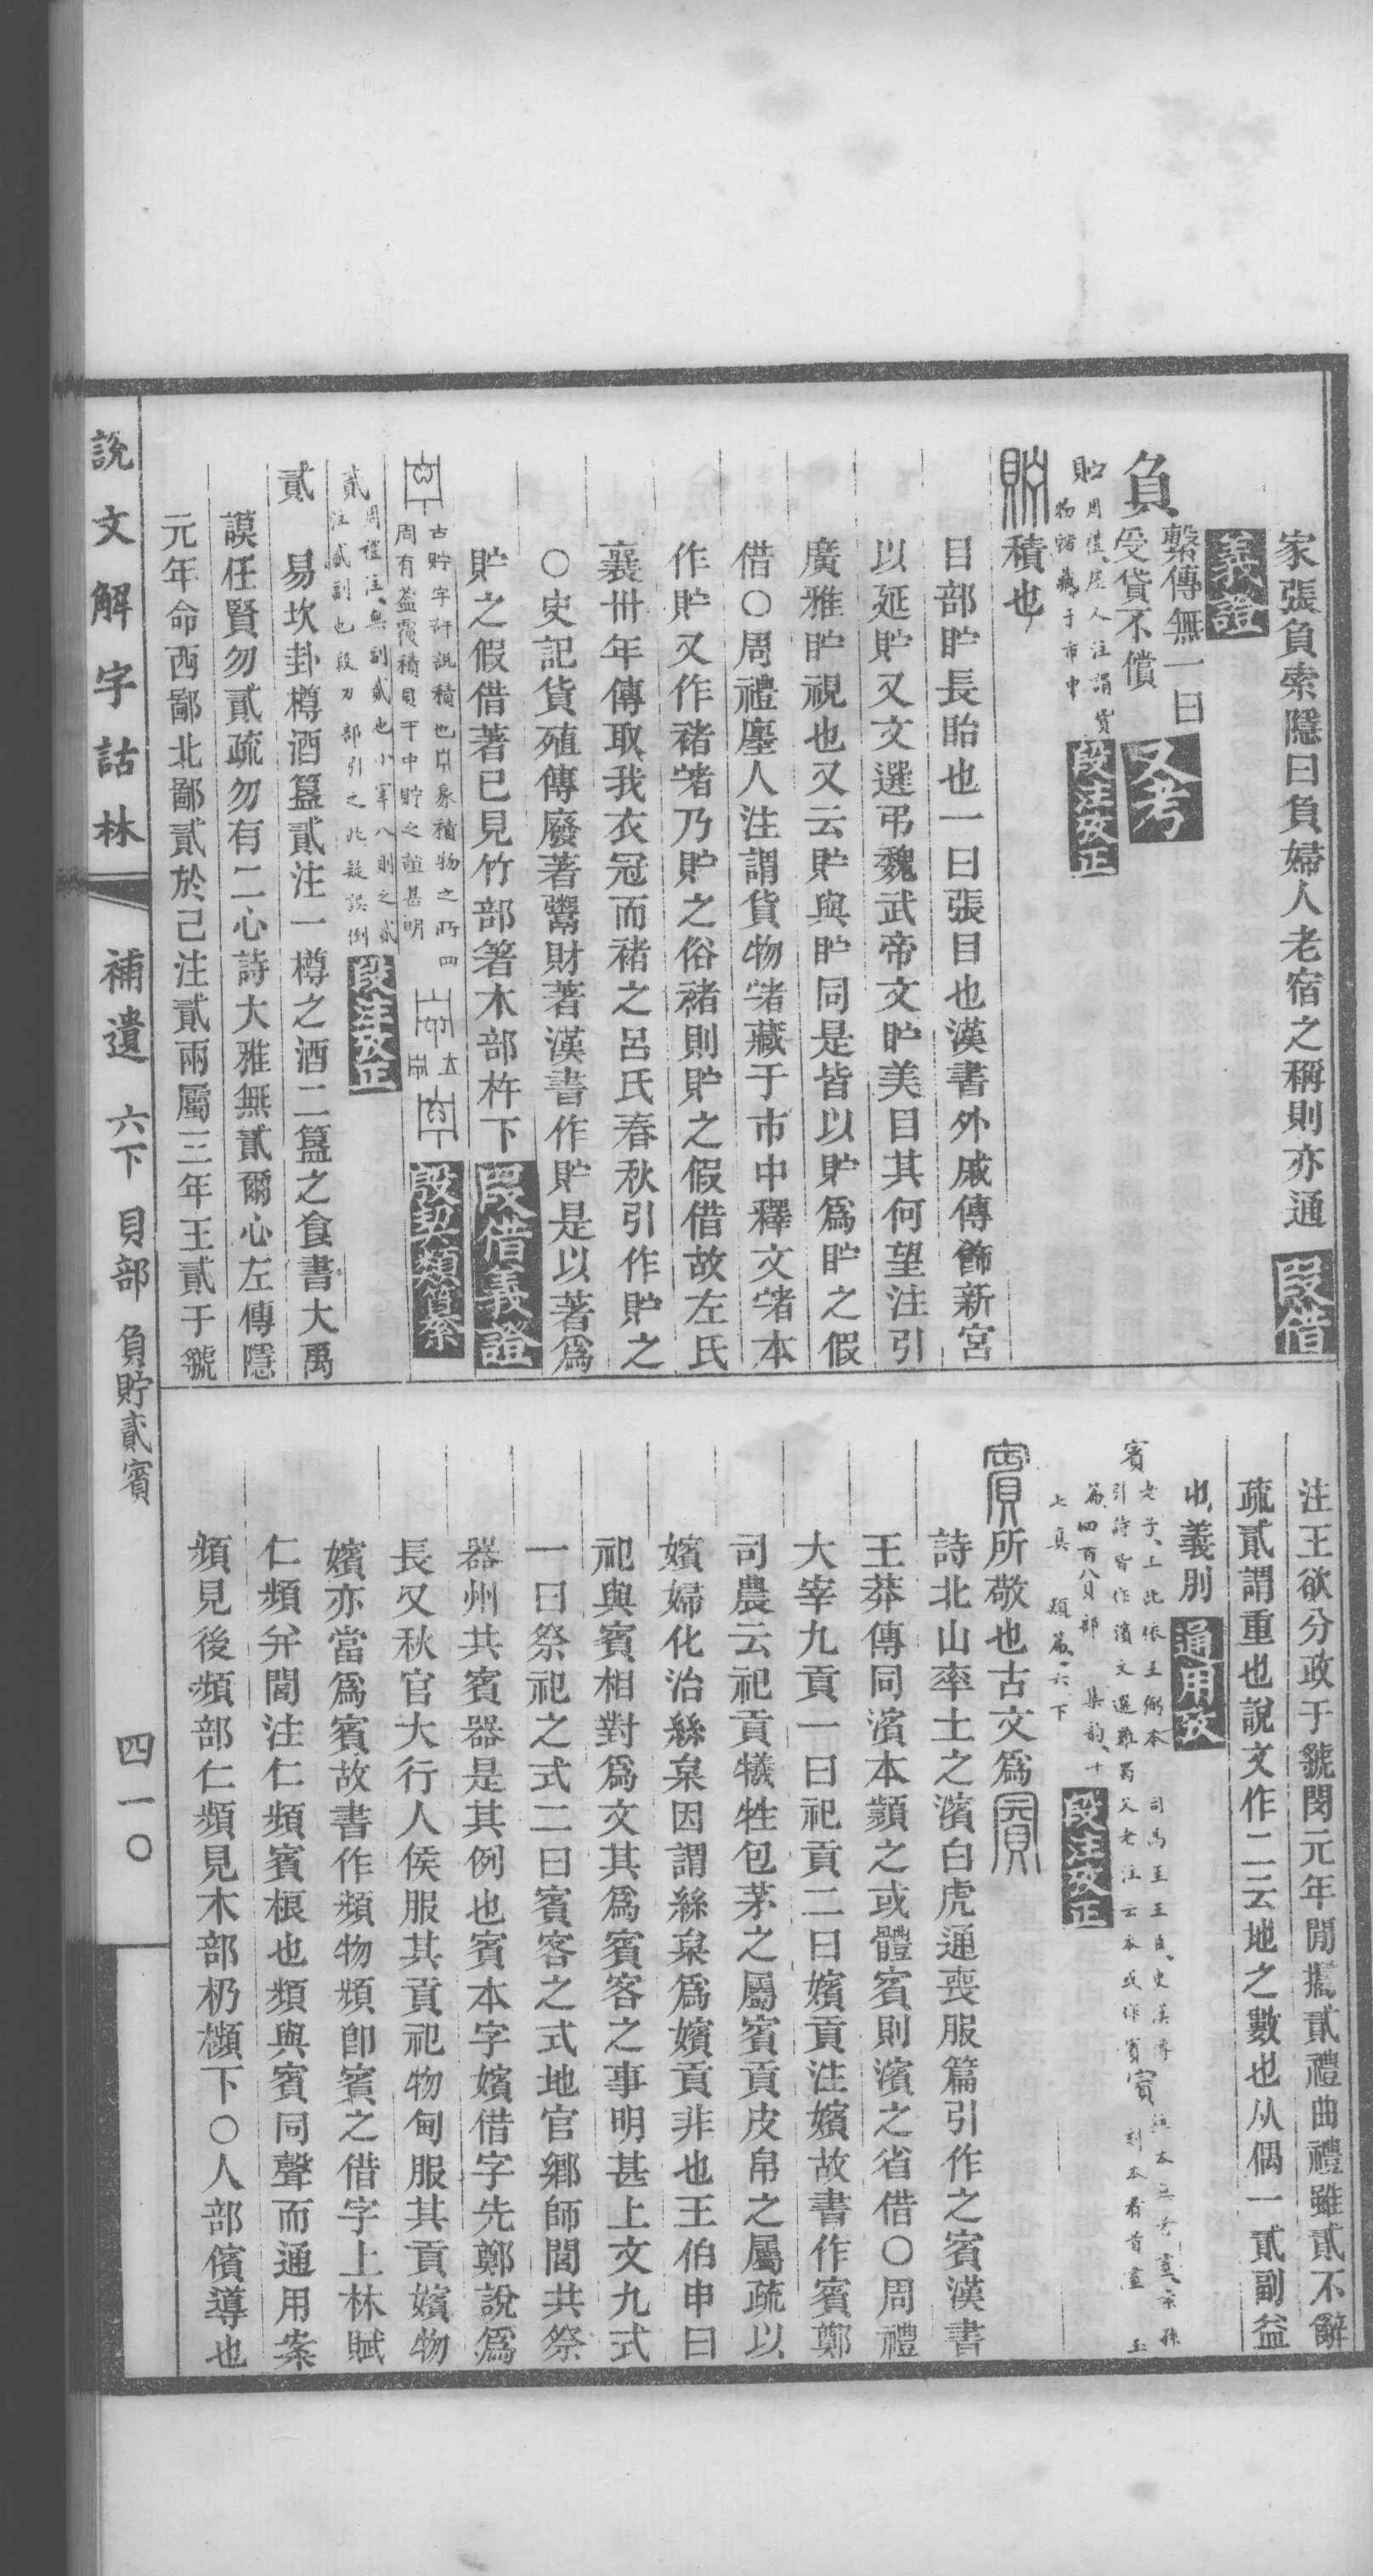 家張負索隱曰負婦人老宿之稱則亦通 叚借
義證
負 繫傳無一曰
受貸不償 又考
貯 周禮廛人注謂貨
物㣥藏于市中 段注攷正
貯 積也
目部眝長眙也一曰張目也漢書外戚傳飾新宮
以延貯又文選弔魏武帝文貯美目其何望注引
廣雅眝視也又云貯與眝同是皆以貯爲眝之假
借○周禮廛人注謂貨物藏于市中釋文本
作貯又作褚乃貯之俗褚則貯之假借故左氏
襄卅年傳取我衣冠而褚之呂氏春秋引作貯之
○史記貨殖傳廢著鬻財著漢書作貯是以著爲
貯之假借著已見竹部箸木部杵下 叚借義證
古貯字許說積也象積物之所四
周有蓋覆積貝于中貯之誼甚明 殷契類纂
貳 周禮注貳副也小宰八則之貳
注貳副也段刀部引之此疑誤倒 段注攷正
貳 易坎卦樽酒簋貳注一樽之酒二簋之食書大禹
謨任賢勿貳疏勿有二心詩大雅無貳爾心左傳隱
元年命西鄙北鄙貳於己注貳兩屬三年王貳于虢
注王欲分政于虢閔元年閒攜貳禮曲禮雖貳不辭
疏貳謂重也說文作二云地之數也从偶一貳副益
也義別 通用攷
賓 老子上此依王弼本 司馬王王莽史漢傳
引詩皆作濱文選難蜀父老注云本或作賓
篇四百八貝部 集韵十
七眞 類篇六下 段注攷正
賓 所敬也古文爲
詩北山率土之濱白虎通喪服篇引作之賓漢書
王莽傳同濱本顮之或體賓則濱之省借○周禮
大宰九貢一曰祀貢二曰嬪貢注嬪故書作賓鄭
司農云祀貢犧牲包茅之屬賓貢皮帛之屬疏以
嬪婦化治絲枲因謂絲枲爲嬪貢非也王伯申曰
祀與賓相對爲文其爲賓客之事明甚上文九式
一曰祭祀之式二曰賓客之式地官鄉師閭共祭
器州共賓器是其例也賓本字嬪借字先鄭說爲
長又秋官大行人侯服其貢祀物甸服其貢嬪物
嬪亦當爲賓故書作頻物頻卽賓之借字上林賦
仁頻并閭注仁頻賓桹也頻與賓同聲而通用案
頻見後頻部仁頻見木部杒櫇下○人部儐導也
說文解字詁林 補遺 六下 貝部 負貯貳賓 四一〇